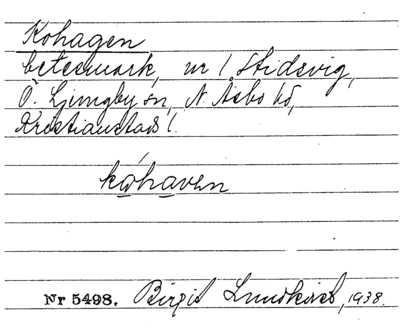 Kohagen
betesmark, nr 1 Stidsvig,
Ö. Ljungby sn, N. Åsbo hd,
Kristianstads l.
kóhaven
Nr 5498. Birgit Lundkvist, 1938.